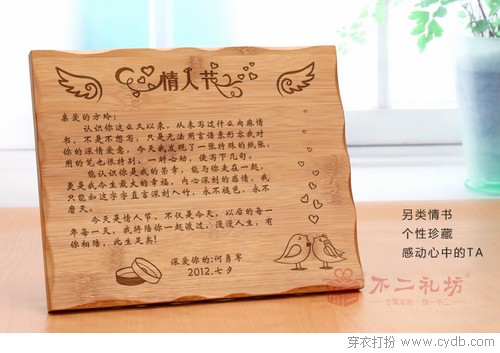 情人节
亲爱的方玲:
认识你这么久以来，从未写过什么肉麻情
书，不是不想写，只是无法用言语来形容我对
你的深情爱意，今天我发现了一张特殊的纸张，
用的笔也很特别，一时心动，便写下几句。
能认识你是我的荣幸，能与你走在一起，
更是我今生最大的幸福，内心深刻的感情，我
只能如这字字直言深刻入竹，永不褪色，永不
磨灭。
今天是情人节，不仅是今天，以后的每一
年每一天，我将陪你一起渡过，漫漫人生，有
你相陪，此生足矣!
深爱你的:何勇军
2012.七夕
另类情书
个性珍藏
感动心中的TA
不二礼坊
穿衣打扮 www.cydb.com